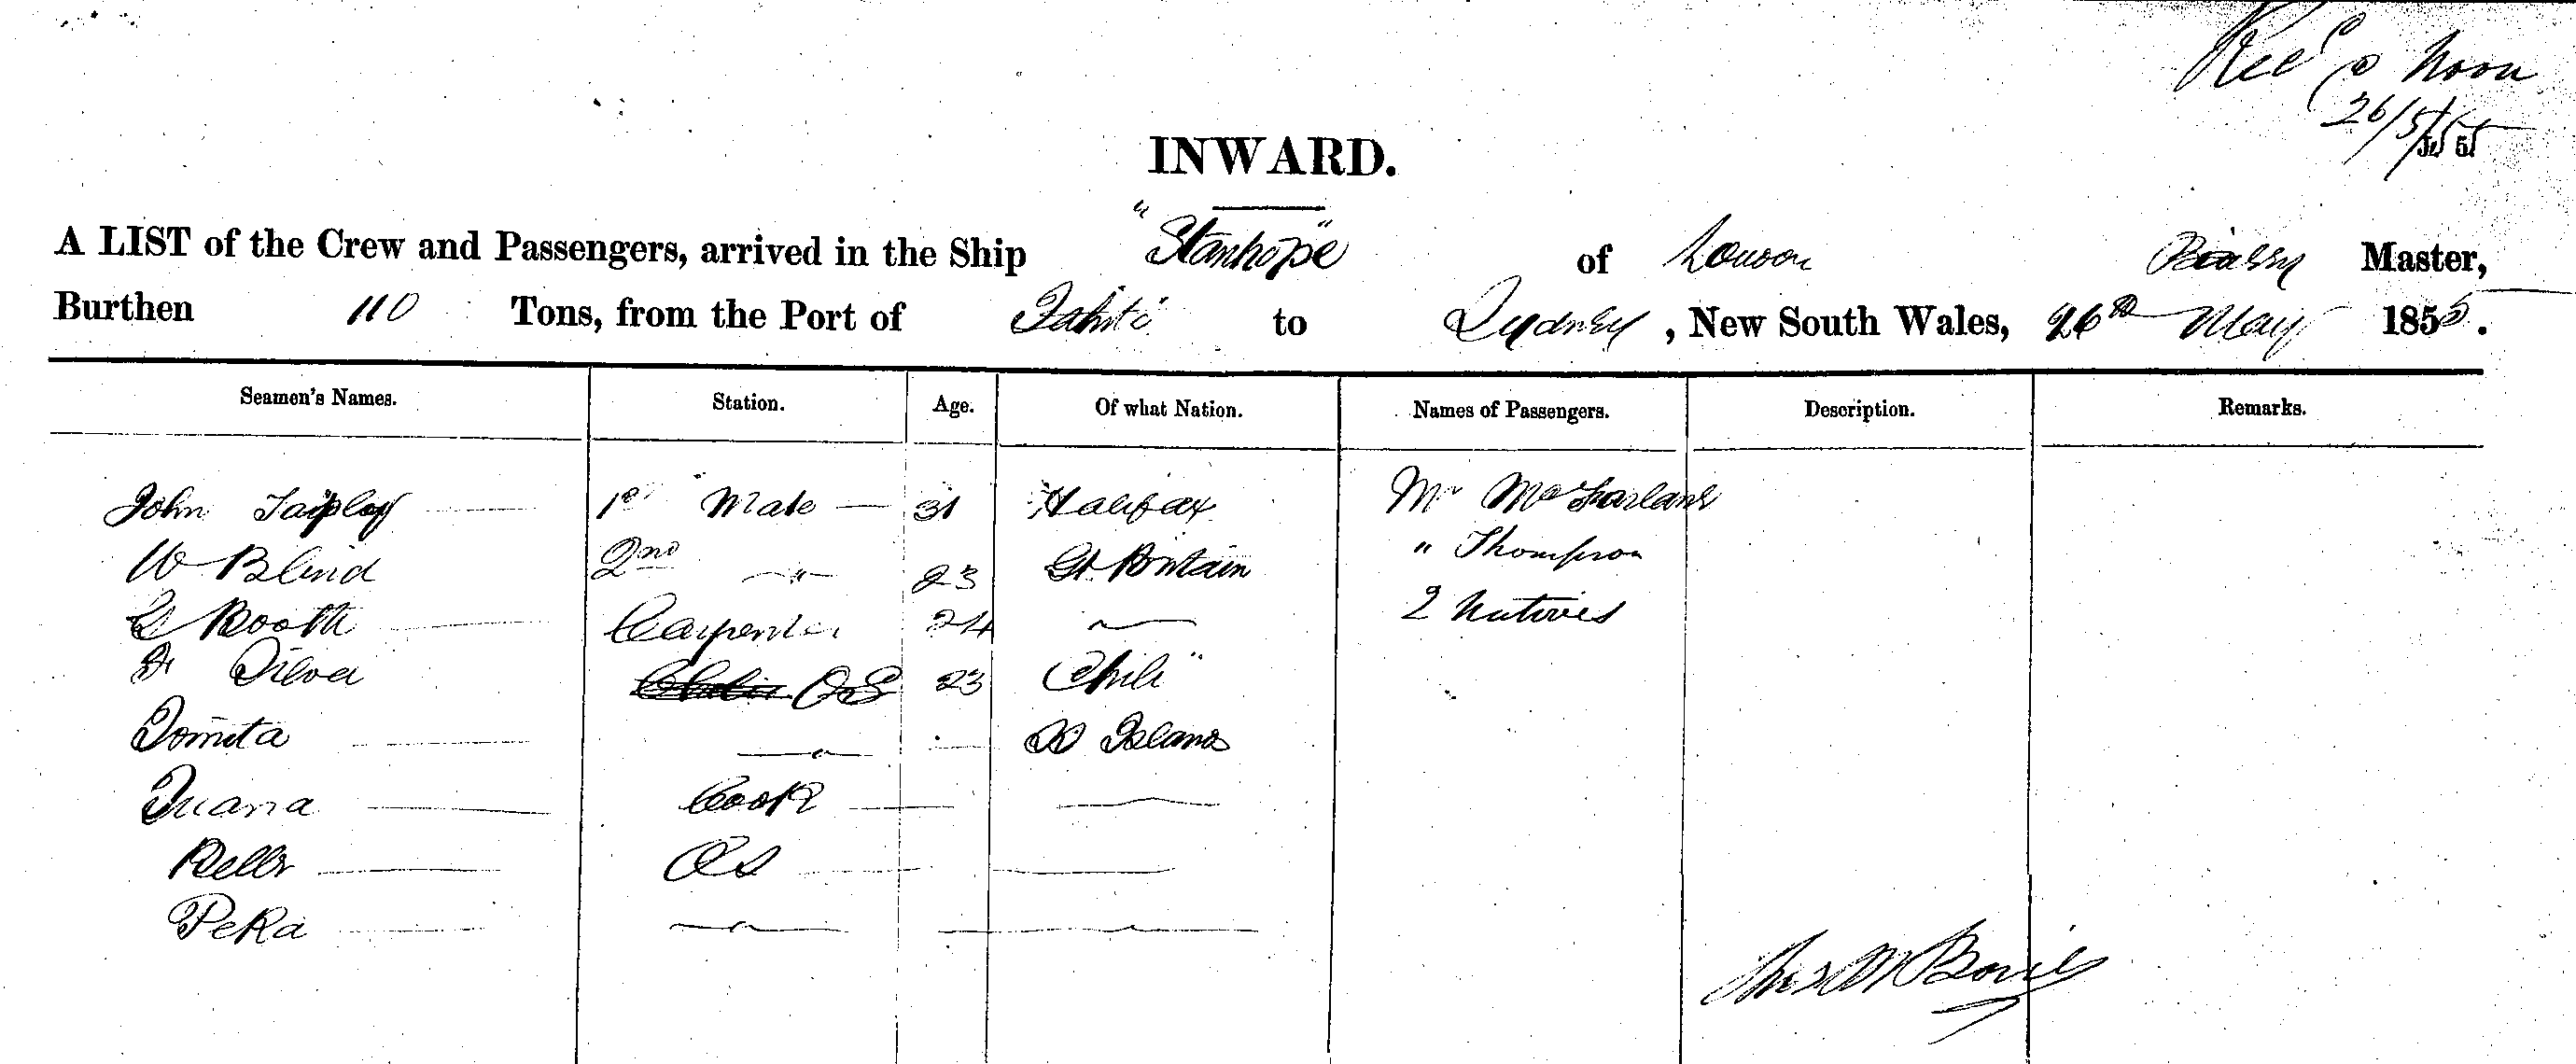 Recd @ Noon
26/5/55
INWARD.
A LIST of the Crew and Passengers, arrived in the Ship "Stanhope" of London Master,
Burthen 110 Tons, from the Port of Tahiti to Sydney, New South Wales, 26th May 1855.
Seamen's Names. Station. Age. Of what Nation. Names of Passengers. Description. Remarks.
John 1st Mate — 31 Halifax Mr McFarlane
W Blind 2nd —"— 23 Gt Britain " Thompson
Booth Carpenter 24 — 2 Natives
Silva OS 23 Chili
Tomita — " — S Islands
Cook — —
OS — —
Peka — " — —